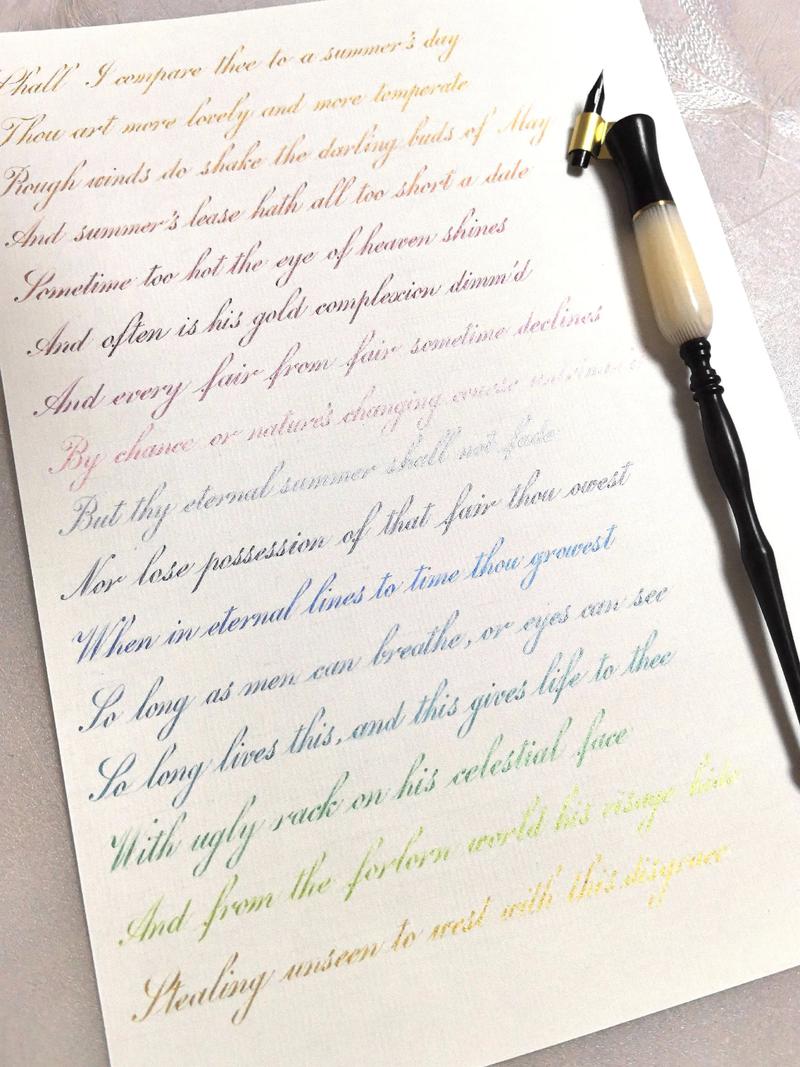 Shall I compare thee to a summer's day
Thou art more lovely and more temperate
Rough winds do shake the darling buds of May
And summer's lease hath all too short a date
Sometime too hot the eye of heaven shines
And often is his gold complexion dimm'd
And every fair from fair sometime declines
By chance or nature's changing course
But thy eternal summer shall not fade
Nor lose possession of that fair thou owest
When in eternal lines to time thou growest
So long as men can breathe, or eyes can see
So long lives this, and this gives life to thee
With ugly rack on his celestial face
And from the forlorn world his visage hide
Stealing unseen to west with this disgrace